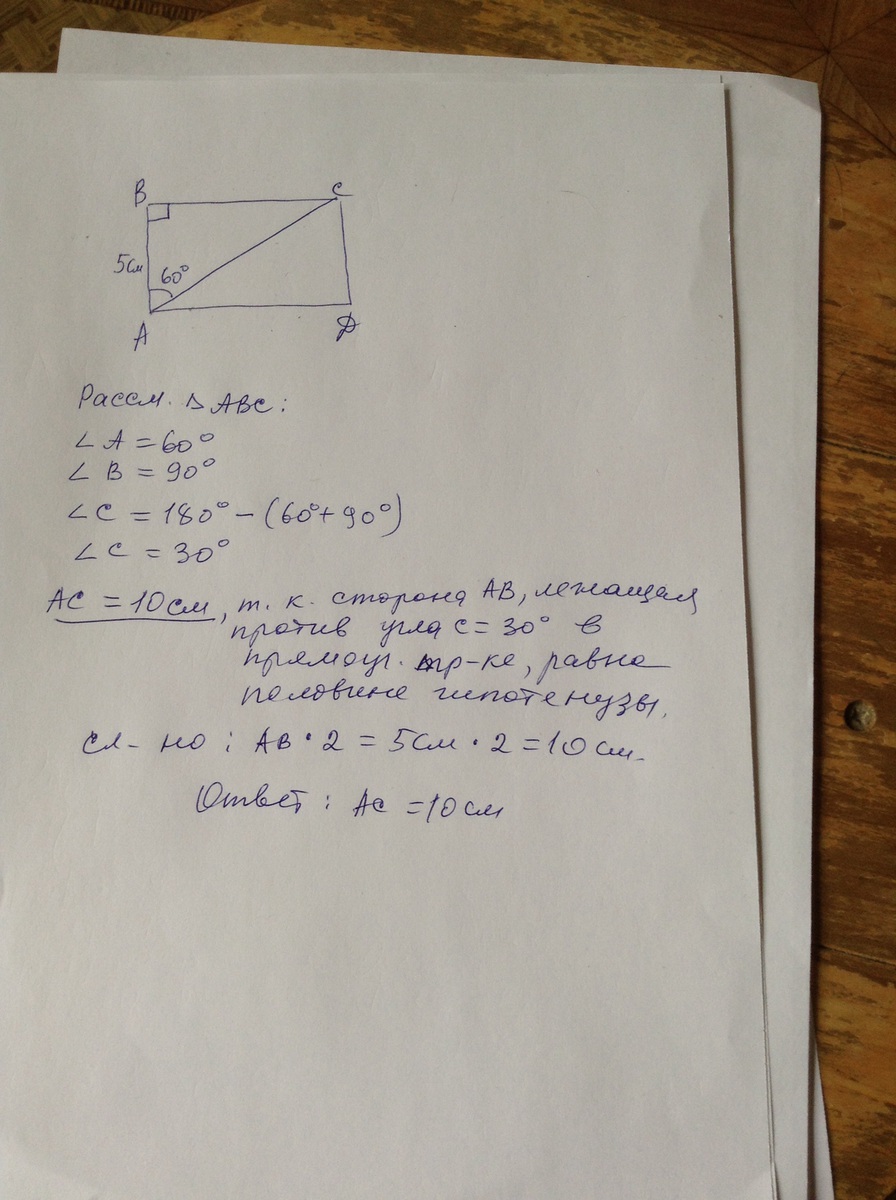 B C
5см 60°
A D
Рассм. △ ABC:
∠ A = 60°
∠ B = 90°
∠ C = 180° - (60° + 90°)
∠ C = 30°
AC = 10 см, т. к. сторона AB, лежащая
против угла C = 30° в
прямоуг. тр-ке, равна
половине гипотенузы.
Сл-но: AB · 2 = 5см · 2 = 10 см.
Ответ: AC = 10 см